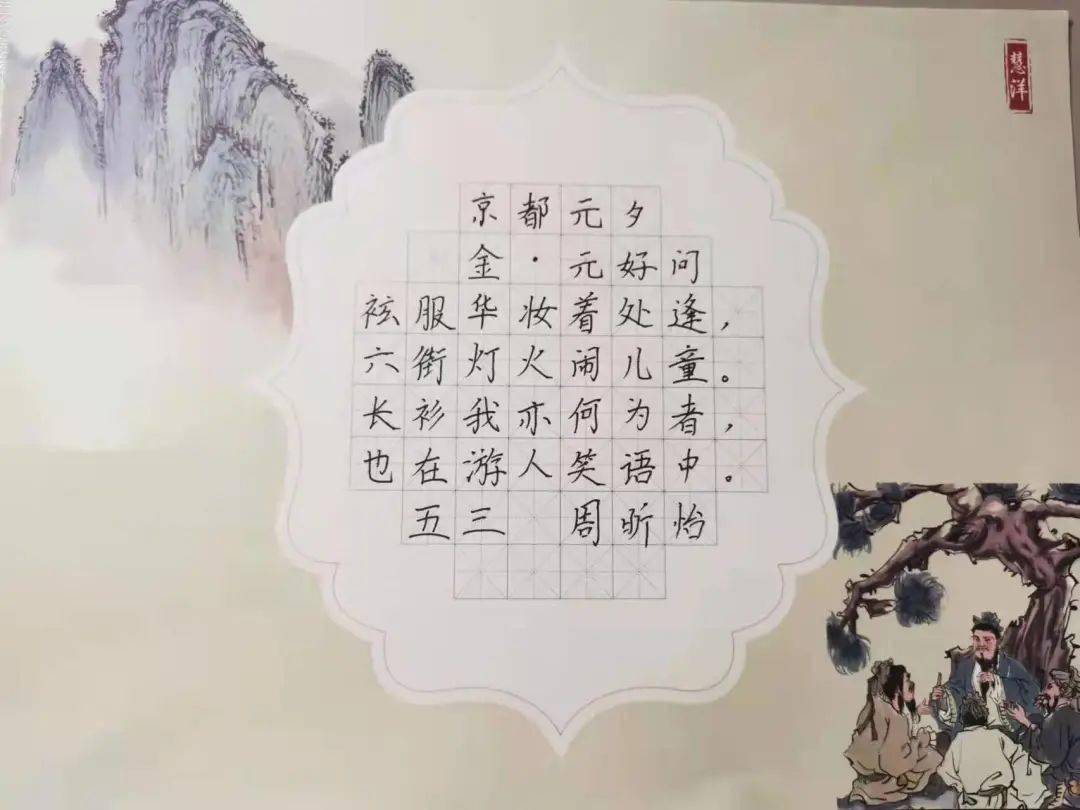 慧洋
京都元夕
金·元好问
袨服华妆着处逢，
六街灯火闹儿童。
长衫我亦何为者，
也在游人笑语中。
五三 周昕怡